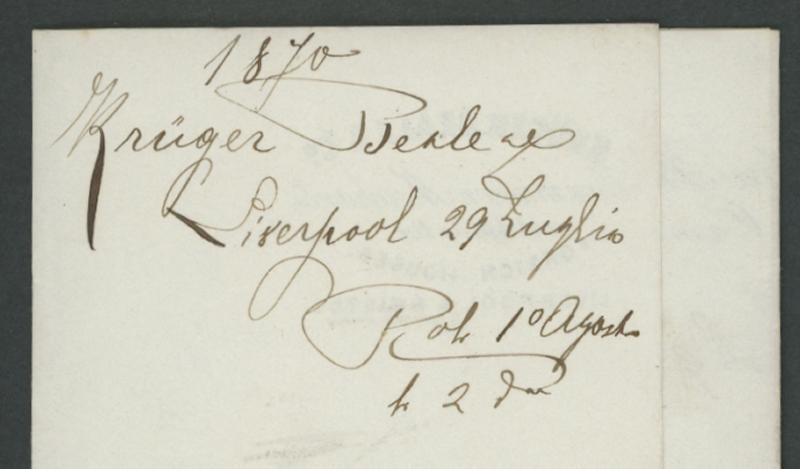 1870
Krüger Beale &
Liverpool 29 Luglio
1º Agosto
2 do